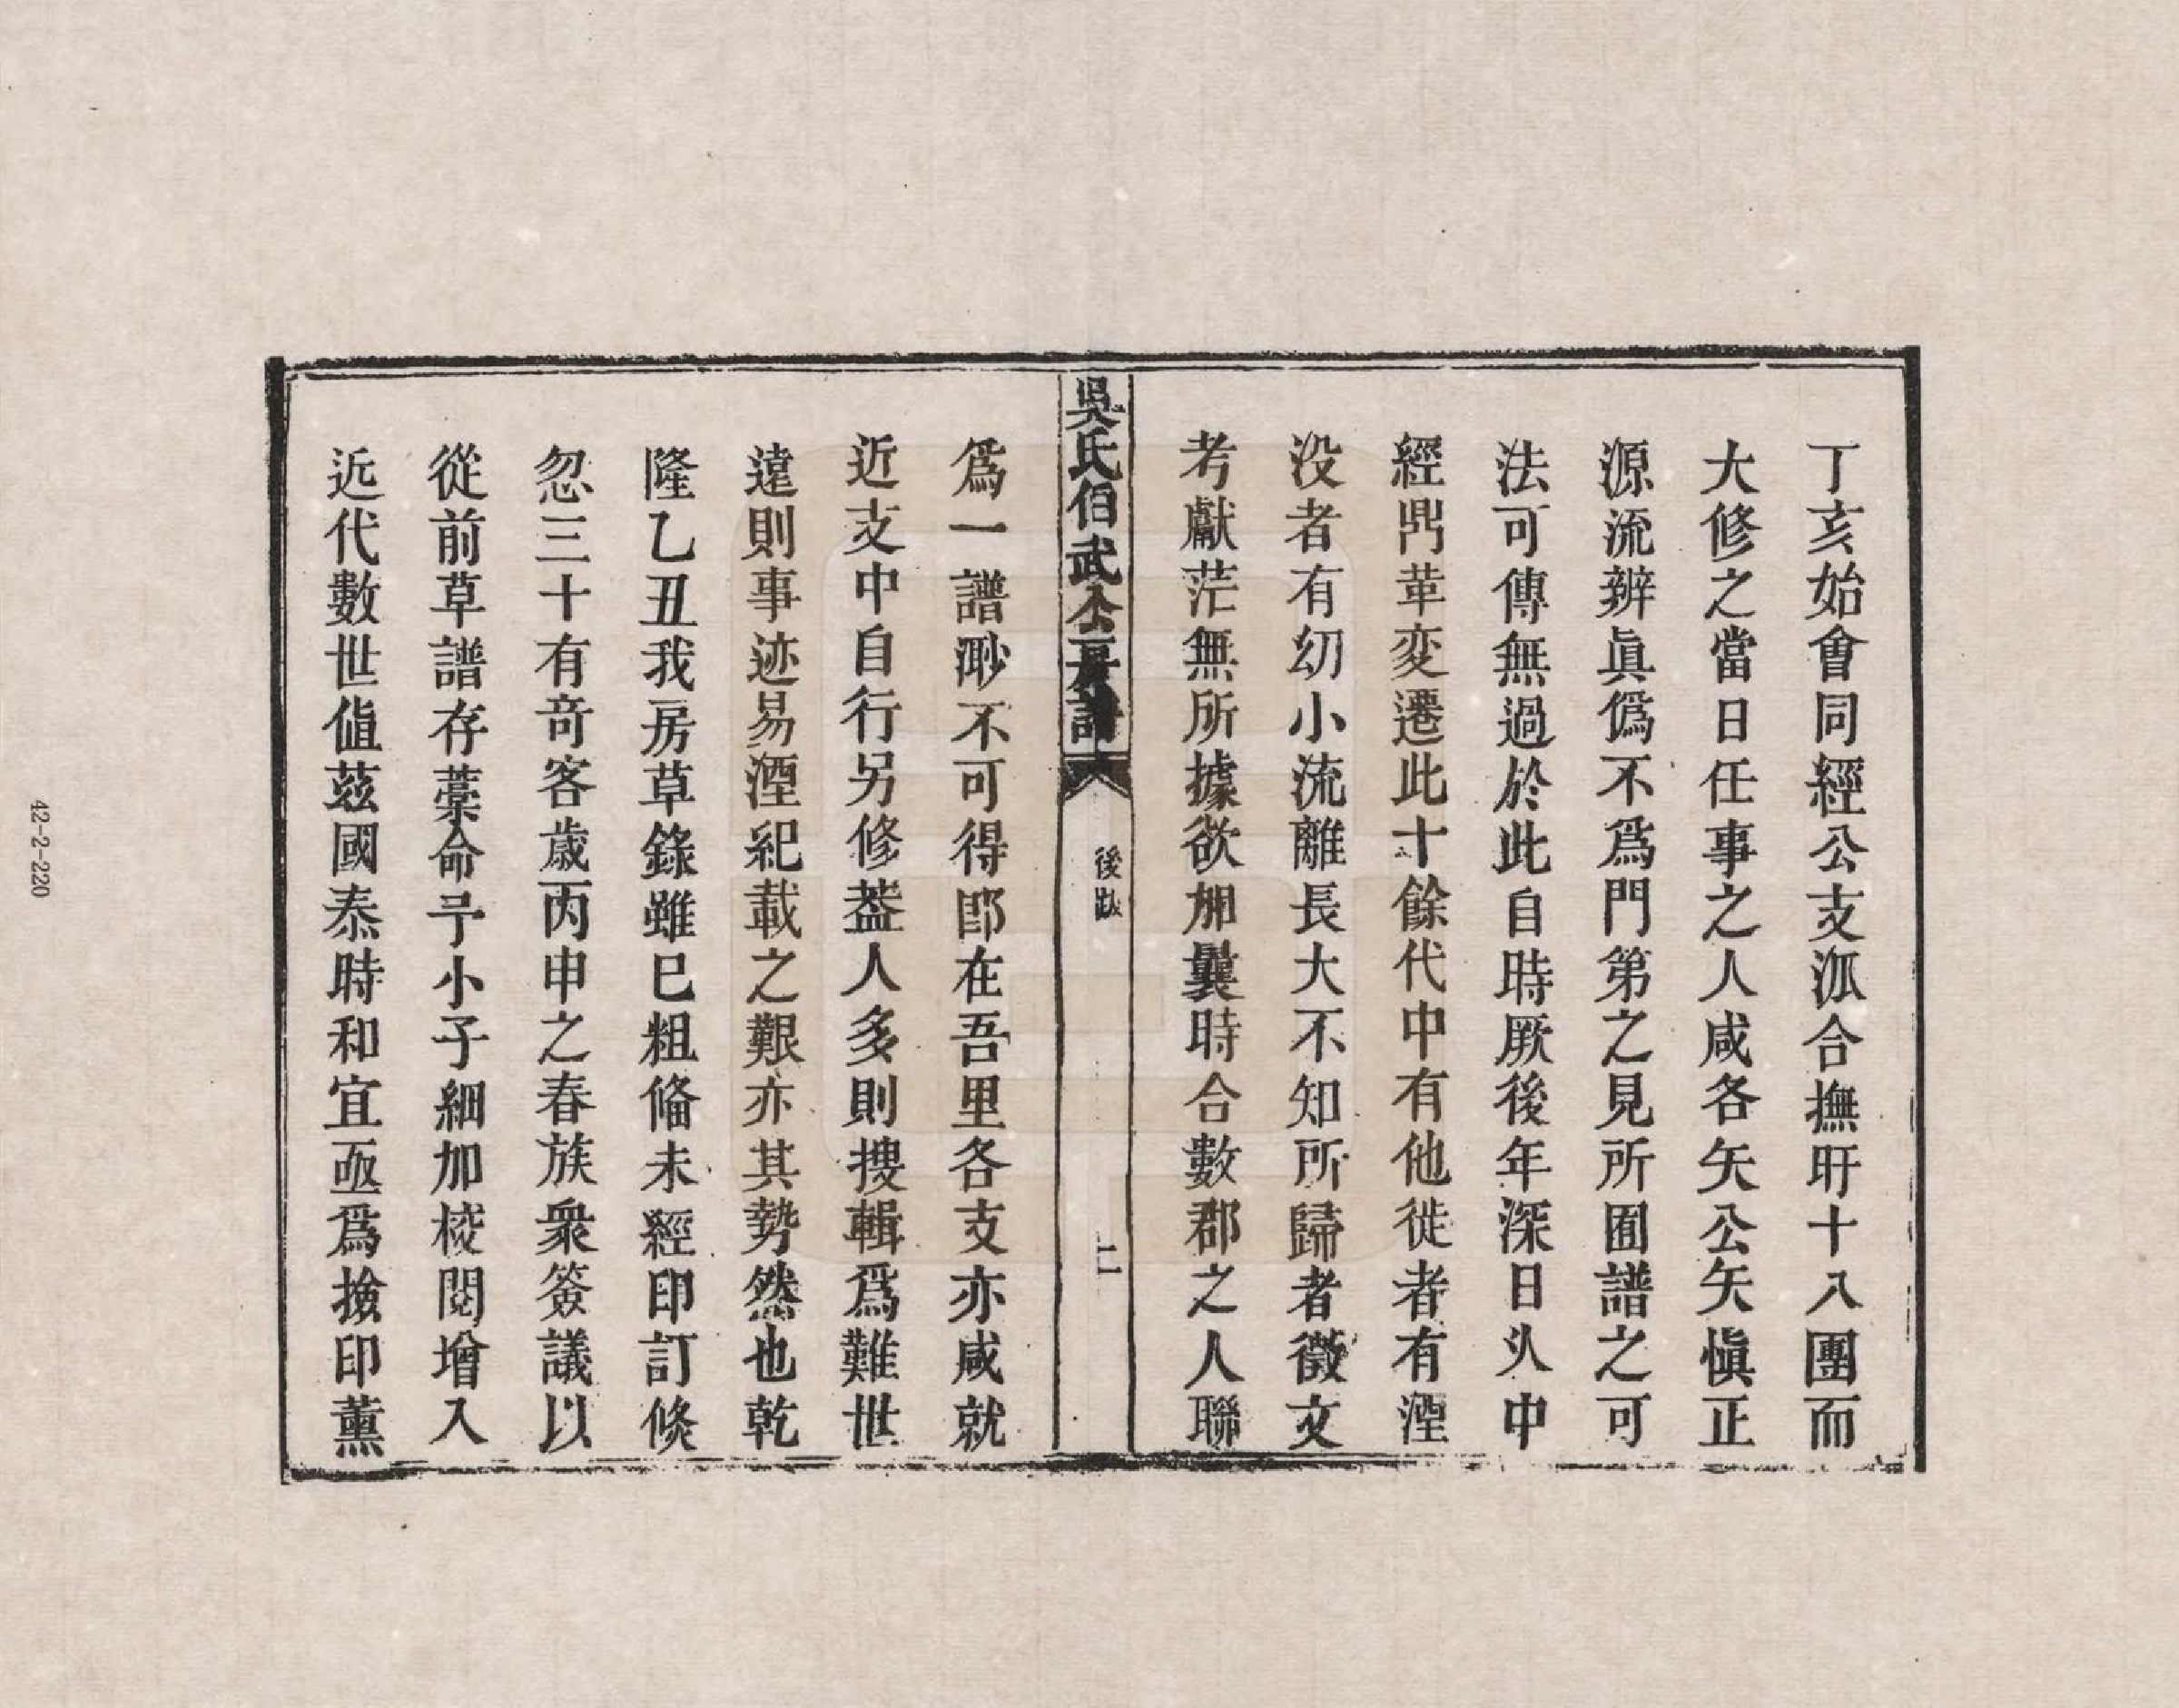 丁亥始會同經公支派合撫盱十八團而
大修之當日任事之人咸各矢公矢愼正
源流辨眞僞不爲門第之見所囿譜之可
法可傳無過於此自時厥後年深日乆中
經鼎革变遷此十餘代中有他徙者有湮
没者有幼小流離長大不知所歸者徵文
考獻茫無所據欲如曩時合數郡之人聯
吳氏伯武公房譜
後跋
二
爲一譜渺不可得卽在吾里各支亦咸就
近支中自行另修葢人多則搜輯爲難世
遠則事迹易湮紀載之艱亦其勢然也乾
隆乙丑我房草錄雖已粗俻未經印訂倐
忽三十有奇客歳丙申之春族衆簽議以
從前草譜存藁命予小子細加校閱增入
近代數世值茲國泰時和宜亟爲撿印薰
42-2-220